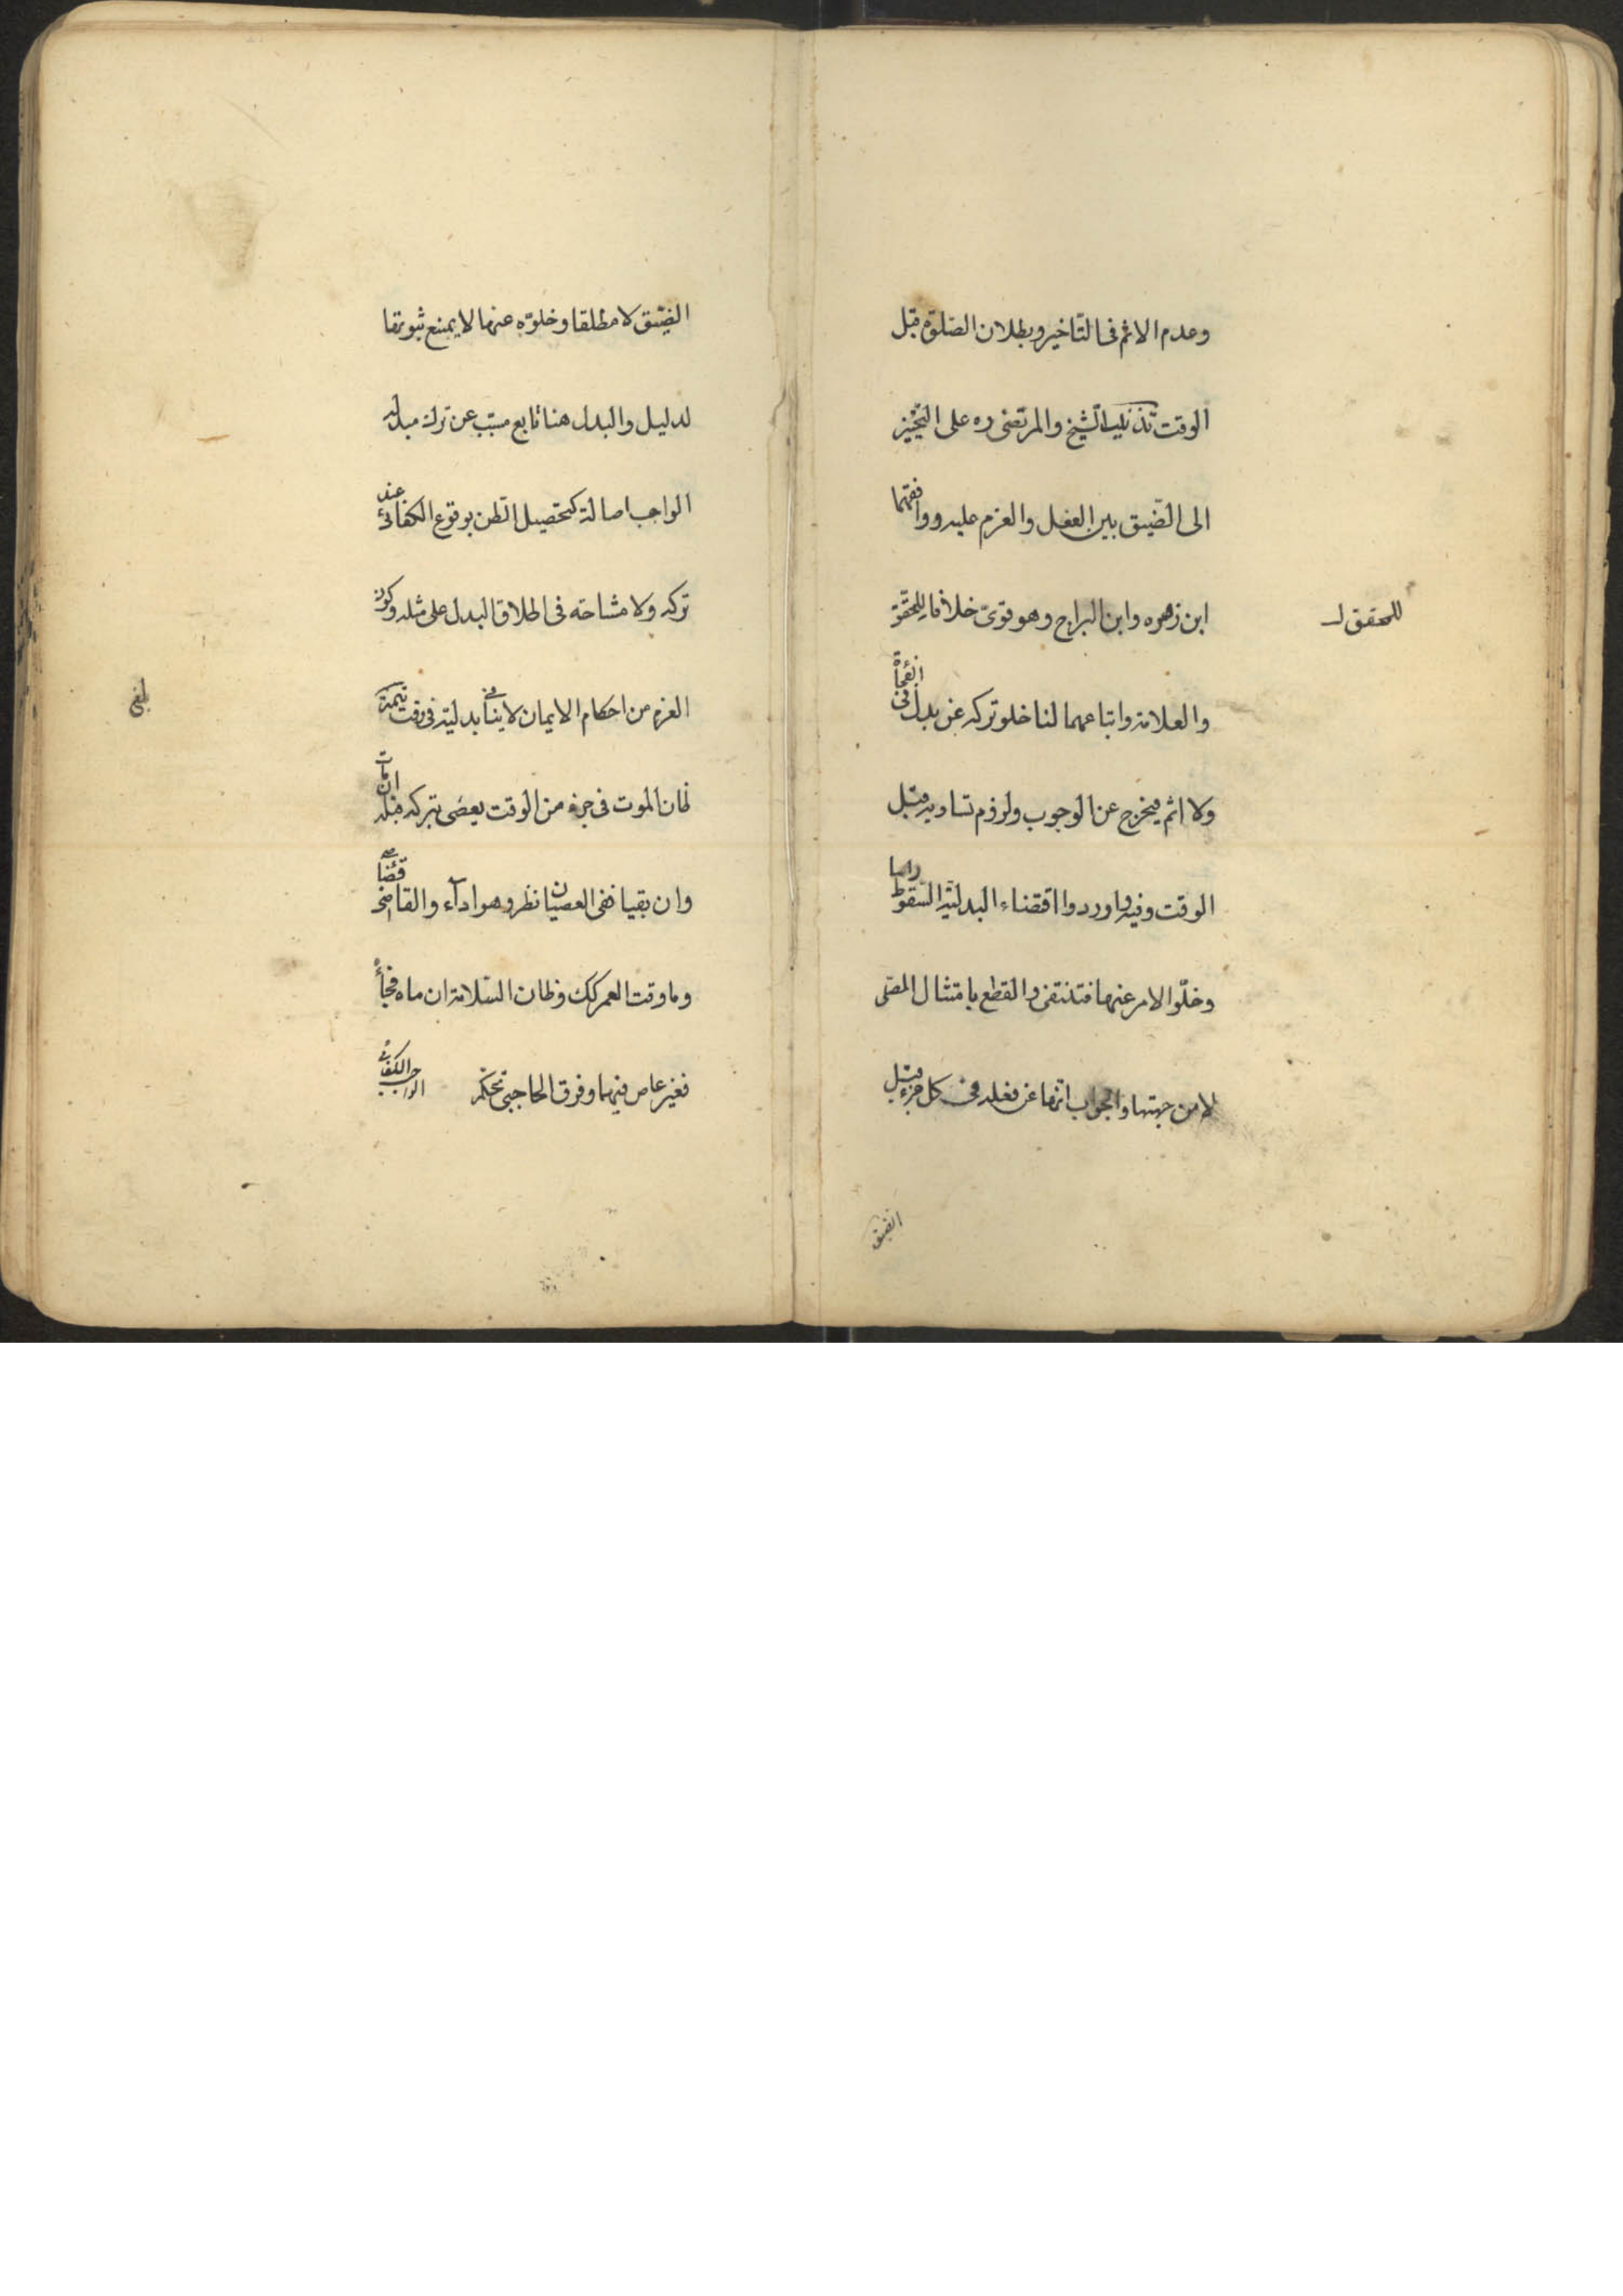 وعدم الاثم فى التاخير وبطلان الصّلوٰة قبل
الوقت تذنيب الشيخ والمرتضى ره على التخيير
الى الضّيق بين الفعل والعزم عليه ووافقهما
ابن زهره وابن البراج وهو قوىّ خلافا للمحقّق
للمحقق
والعلامة واتباعهما لنا خلو تركه عن بدل فى الفجأة
ولا اثم فيخرج عن الوجوب ولزوم تساويه قبل
الوقت وفيه واوردوا اقتضاء البدليّة السّقوط راسا
وخلّوا الامر عنها فتنتفى والقطع بامتثال المصلّى
لا من جهتها والجواب انّها عن فعله فى كل جزء قبل
الضيق
الضيّق لا مطلقا وخلوّه عنها لا يمنع ثبوتها
لدليل والبدل هنا تابع مسبّب عن ترك مبدله
الواجب اصالة كتحصيل الظن بوقوع الكفائى عند
تركه ولا مشاحه فى اطلاق البدل على مثله وكون
العزم من احكام الايمان لا ينافى بدليته فى وقت تتمة
ظان الموت فى جزء من الوقت يعصى بتركه قبله ان مات
وان بقيا ففى العصيان نظر وهو اداء والقاضى قضاء
وما وقت العمر كك وظان السّلامة ان مات فجأة
فغير عاص فيهما وفرق الحاجبى تحكم
الواجب الكفائى